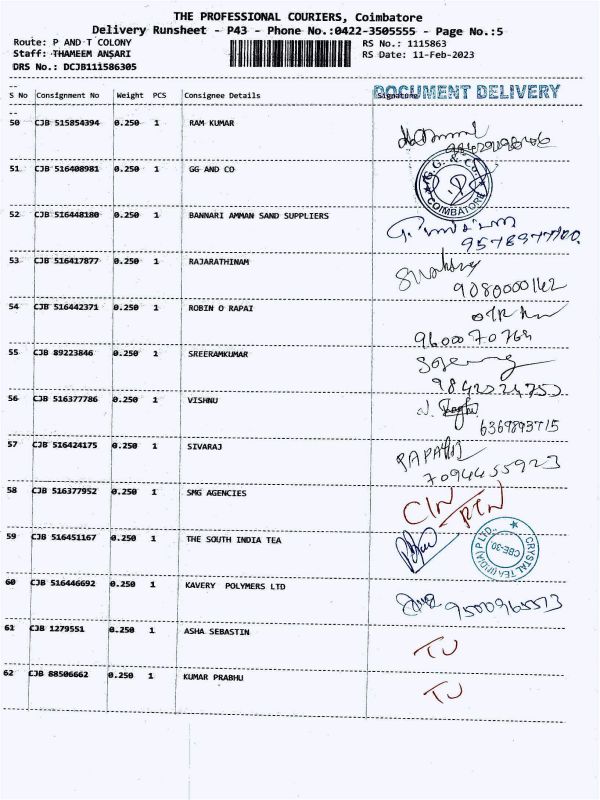 THE PROFESSIONAL COURIERS, Coimbatore
Delivery Runsheet - P43 - Phone No.:0422-3505555 - Page No.:5
Route: P AND T COLONY RS No.: 1115863
Staff: THAMEEM ANSARI RS Date: 11-Feb-2023
DRS No.: DCJB111586305
DOCUMENT DELIVERY
S No Consignment No Weight PCS Consignee Details Signature
50 CJB 515854394 0.250 1 RAM KUMAR
51 CJB 516408981 0.250 1 GG AND CO G.G. & Co. COIMBATORE
52 CJB 516448180 0.250 1 BANNARI AMMAN SAND SUPPLIERS
53 CJB 516417877 0.250 1 RAJARATHINAM
9080000162
54 CJB 516442371 0.250 1 ROBIN O RAPAI
9600070769
55 CJB 89223846 0.250 1 SREERAMKUMAR
9842024753
56 CJB 516377786 0.250 1 VISHNU
6369893715
57 CJB 516424175 0.250 1 SIVARAJ
7094455923
58 CJB 516377952 0.250 1 SMG AGENCIES
CIN/RTN
59 CJB 516451167 0.250 1 THE SOUTH INDIA TEA
CRYSTAL TEA (INDIA) P LTD., CBE-30.
60 CJB 516446692 0.250 1 KAVERY POLYMERS LTD
9500965573
61 CJB 1279551 0.250 1 ASHA SEBASTIN
TU
62 CJB 88506662 0.250 1 KUMAR PRABHU
TU